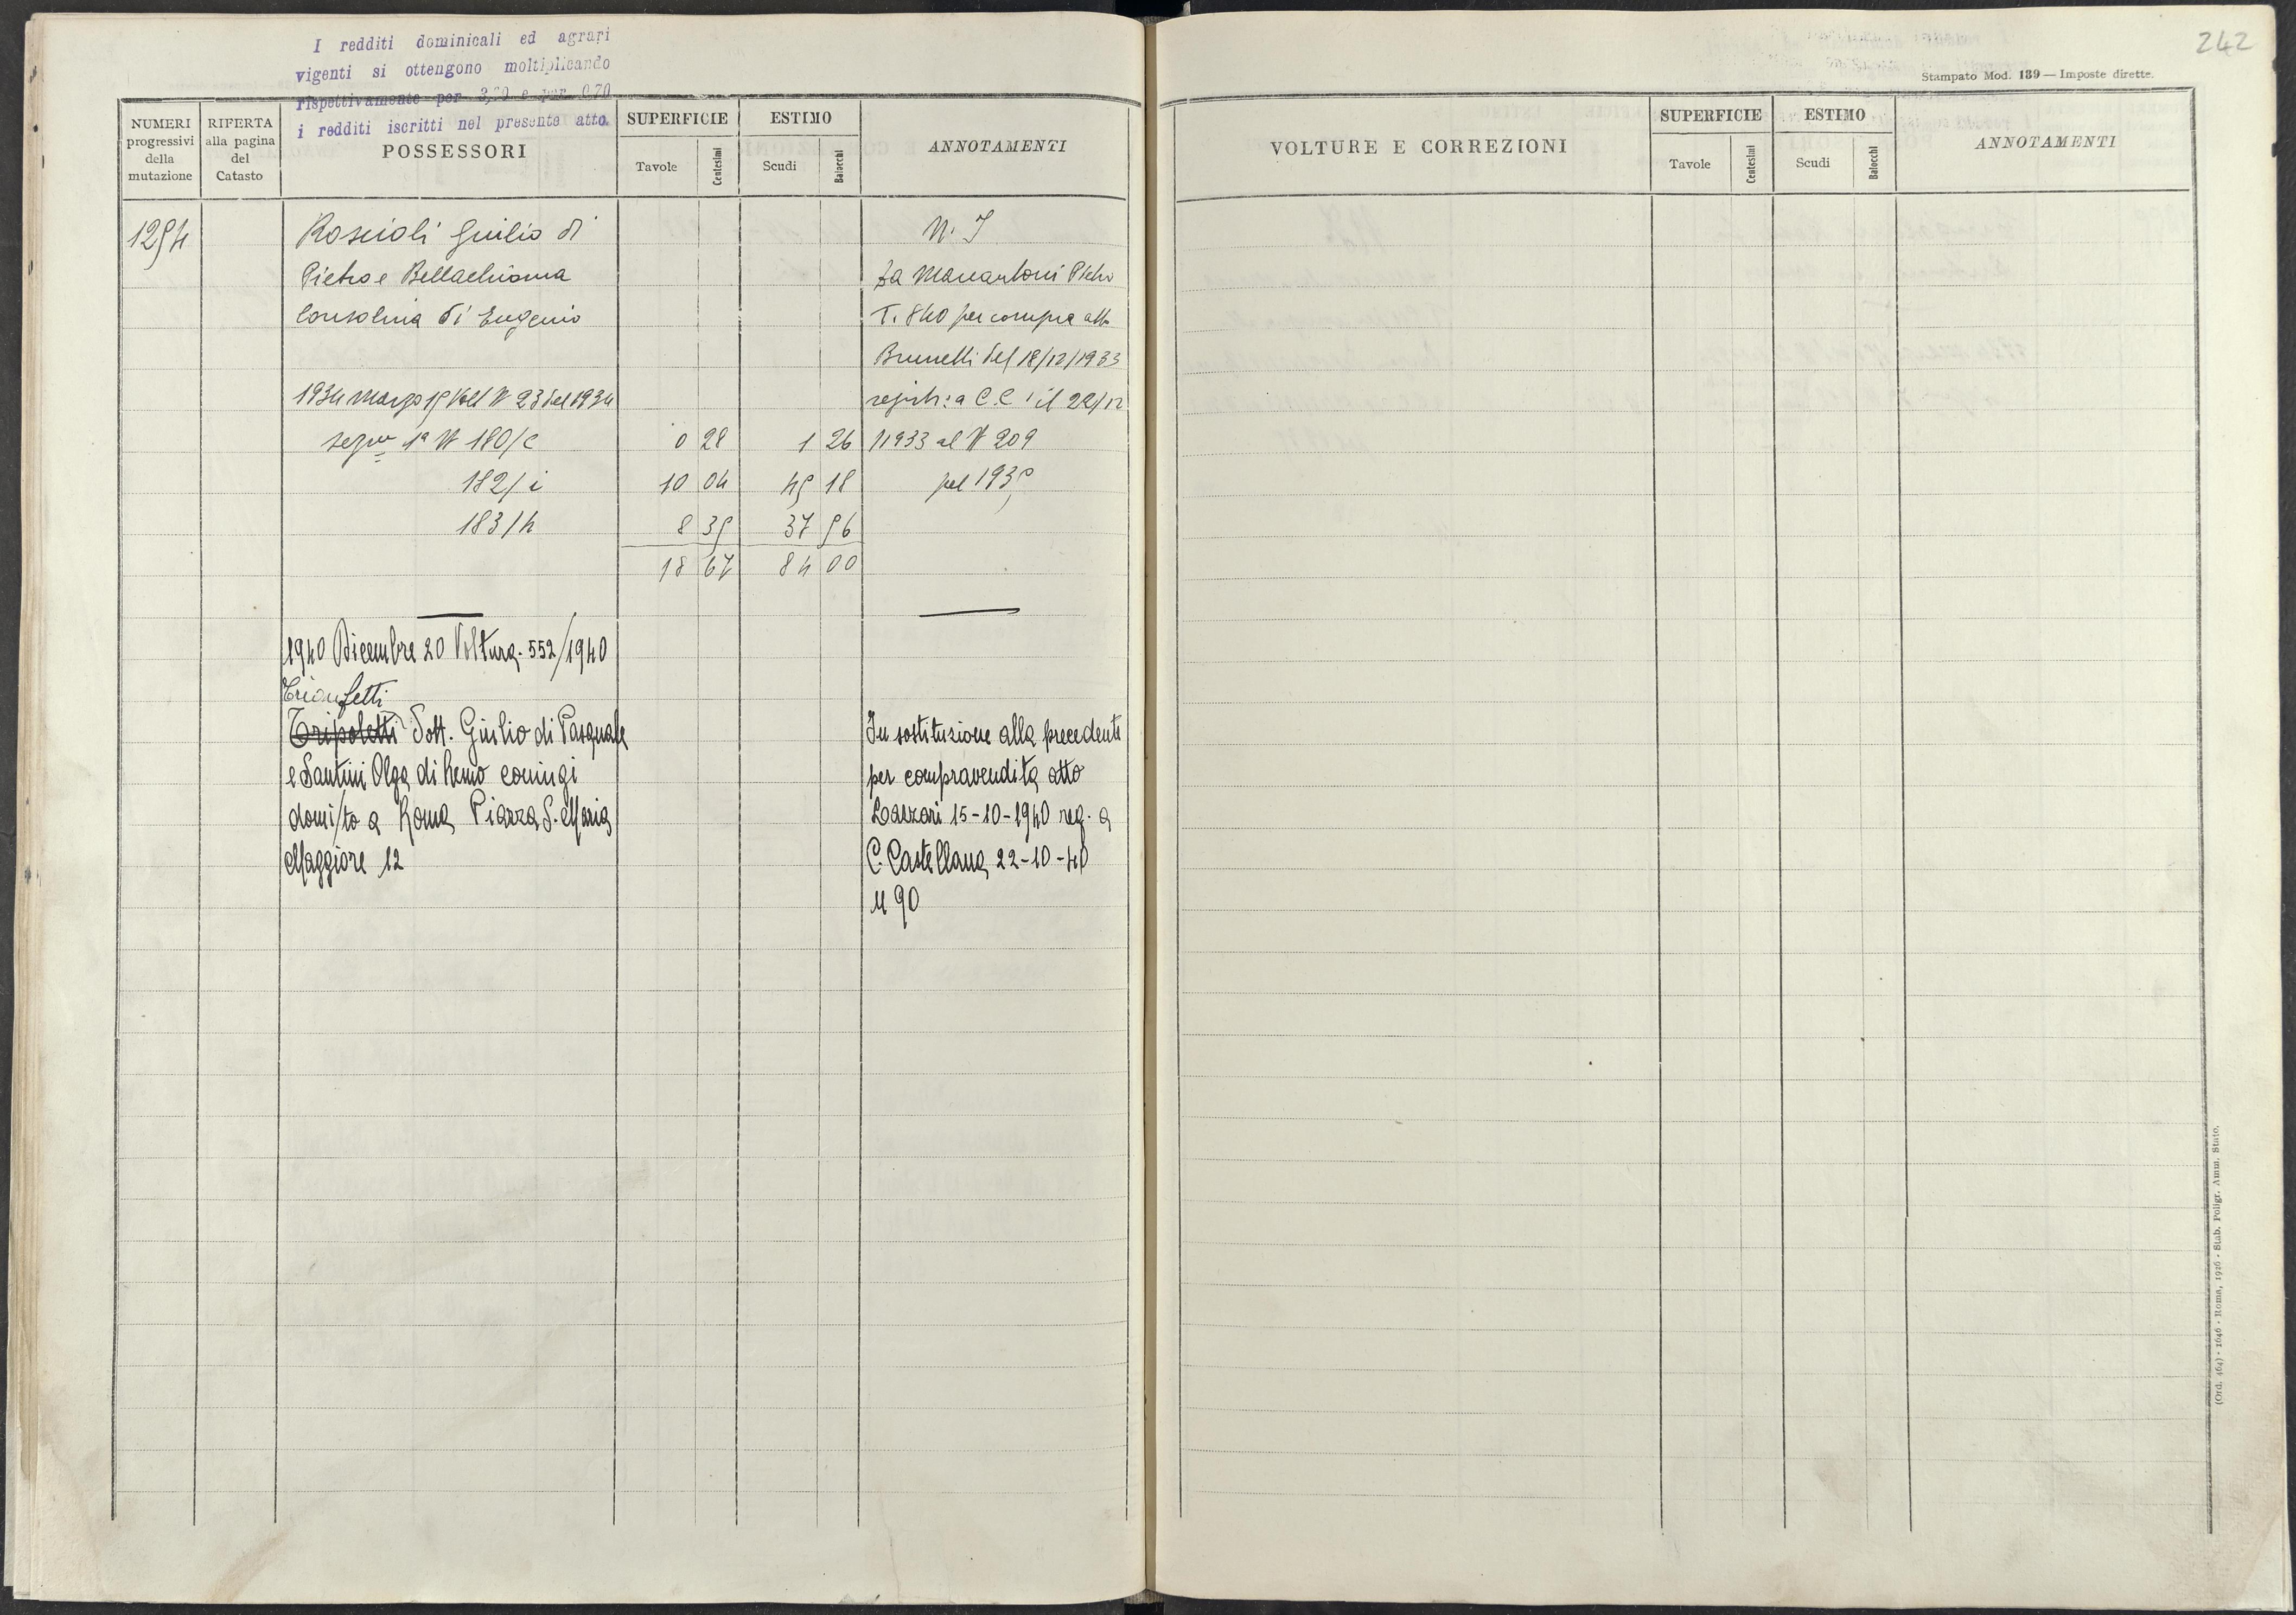 I redditi dominicali ed agrari
vigenti si ottengono moltiplicando
rispettivamente per 3,20 e per 0,70
i redditi iscritti nel presente atto.
NUMERI progressivi della mutazione
RIFERTA alla pagina del Catasto
POSSESSORI
SUPERFICIE
Tavole
Centesimi
ESTIMO
Scudi
Baiocchi
ANNOTAMENTI
1254
Roscioli Giulio di
Pietro e Bellachioma
Consolina di Eugenio
1934 Marzo 15 Volt N 23 del 1934
sezne 1a N 180/c 0 28 1 26
182/i 10 04 45 18
183/h 8 35 37 56
18 67 84 00
N. I
Da Mancantoni Pietro
T. 840 per compra atto
Brunelli del 18/12/1933
registr: a C. C. il 22/12
/1933 al N 209
pel 1935
1940 Dicembre 20 Voltura. 552/1940
Trionfetti
Tripoletti Dott. Giulio di Pasquale
e Santini Olga di Remo coniugi
domi/to a Roma Piazza S. Maria
Maggiore 12
In sostituzione alla precedente
per compravendita atto
Lazzari 15-10-1940 reg. a
C. Castellana 22-10-40
N 90
242
Stampato Mod. 139 — Imposte dirette.
VOLTURE E CORREZIONI
SUPERFICIE
Tavole
Centesimi
ESTIMO
Scudi
Baiocchi
ANNOTAMENTI
(Ord. 464) - 1646 - Roma, 1926 - Stab. Poligr. Amm. Stato.